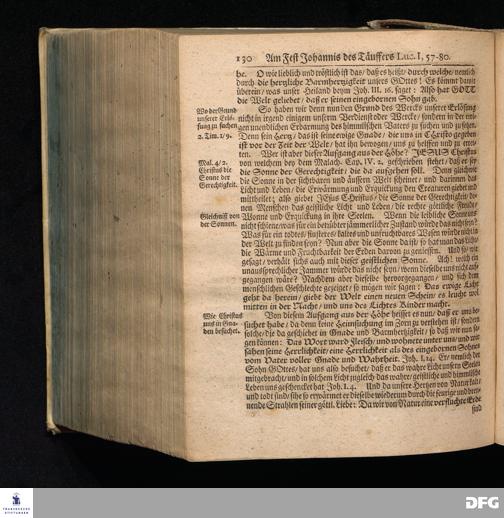 130 Am Fest Johannis des Täuffers Luc. I, 57-80.
he. O wie lieblich und tröstlich ist das / daß es heist / durch welche / nemlich
durch die hertzliche Barmhertzigkeit unsers GOttes! Es kömmt damit
überein / was unser Heiland beym Joh. III. 16. saget: Also hat GOTT
die Welt geliebet / daß er seinen eingebornen Sohn gab.
Wo der Grund
unserer Erlö-
sung zu suchen
2. Tim. 1/9.
So haben wir denn nun den Grund des Wercks unserer Erlösung
nicht in irgend einigem unserm Verdienst oder Wercke / sondern in der eini-
gen unendlichen Erbarmung des himmlischen Vaters zu suchen und zu sehen.
Denn sein Hertz / das ist seine ewige Gnade / die uns in Christo gegeben
ist vor der Zeit der Welt / hat ihn bewogen / uns zu helffen und zu erret-
ten. Wer ist aber dieser Aufgang aus der Höhe? JESUS Christus
Mal. 4/2.
Christus die
Sonne der
Gerechtigkeit.
von welchem bey dem Malach. Cap. IV. 2. geschrieben stehet / daß er sey
die Sonne der Gerechtigkeit / die da aufgehen soll. Denn gleichwie
die Sonne in der sichtbaren und äussern Welt scheinet / und darinnen das
Licht und Leben / die Erwärmung und Erquickung den Creaturen giebet und
mittheilet; also giebet JEsus Christus / die Sonne der Gerechtigkeit de-
nen Menschen das geistliche Licht und Leben / die rechte göttliche Freude /
Gleichniß von
der Sonnen.
Wonne und Erquickung in ihre Seelen. Wenn die leibliche Sonne uns
nicht schiene / was für ein betrübter jämmerlicher Zustand würde das nicht seyn?
Was für ein todtes / finsteres / kaltes und unfruchtbares Wesen würde nicht in
der Welt zu finden seyn? Nun aber die Sonne da ist / so hat man das Licht /
die Wärme und Fruchtbarkeit der Erden davon zu geniessen. Und so / wie
gesagt / verhält sichs auch mit dieser geistlichen Sonne. Ach! welch ein
unaussprechlicher Jammer würde das nicht seyn / wenn dieselbe uns nicht auf-
gegangen wäre? Nachdem aber dieselbe hervorgegangen / und sich dem
menschlichen Geschlechte gezeiget / so mögen wir sagen: Das ewige Licht
geht da herein / giebt der Welt einen neuen Schein / es leucht wol
mitten in der Nacht / und uns des Lichtes Kinder macht.
Wie Christus
uns in Gna-
den besuchet.
Von diesem Aufgang aus der Höhe heisset es nun / daß er uns be-
suchet habe / da denn keine Heimsuchung im Zorn zu verstehen ist / sondern
solche / die da geschiehet in Gnade und Barmhertzigkeit / so daß wir nun sa-
gen können: Das Wort ward Fleisch / und wohnete unter uns / und wir
sahen seine Herrlichkeit / eine Herrlichkeit als des eingebornen Sohnes
vom Vater voller Gnade und Wahrheit. Joh. I, 14. Er / nemlich der
Sohn GOttes / hat uns also besuchet / daß er das wahre Licht unsern Seelen
mitgebracht / und in solchem Licht zugleich das wahre / geistliche und himmlische
Leben uns geschencket hat Joh. I. 4. Und da unsere Hertzen von Natur kalt
und todt sind / sihe so erwärmet er dieselbe wiederum durch die feurige und bren-
nende Strahlen seiner göttl. Liebe: Da wir von Natur eine verfluchte Erde
sind
FRANCKESCHE
STIFTUNGEN
DFG